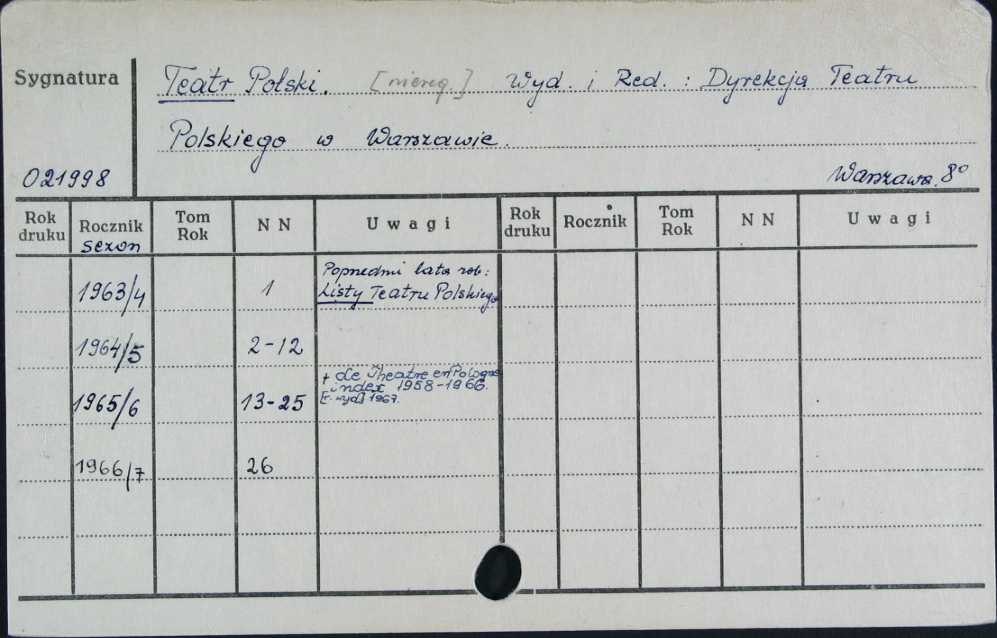 Sygnatura
Teatr Polski. [niereg.] Wyd. i Red.: Dyrekcja Teatru
Polskiego w Warszawie.
021998
Warszawa, 8°
Rok druku Rocznik sezon Tom Rok N N Uwagi Rok druku Rocznik Tom Rok N N Uwagi
Poprzedni lata zob:
1963/4 1 Listy Teatru Polskiego
1964/5 2-12
+ Le Théatre en Pologne
index 1958-1966.
1965/6 13-25 [r. wyd] 1967.
1966/7 26